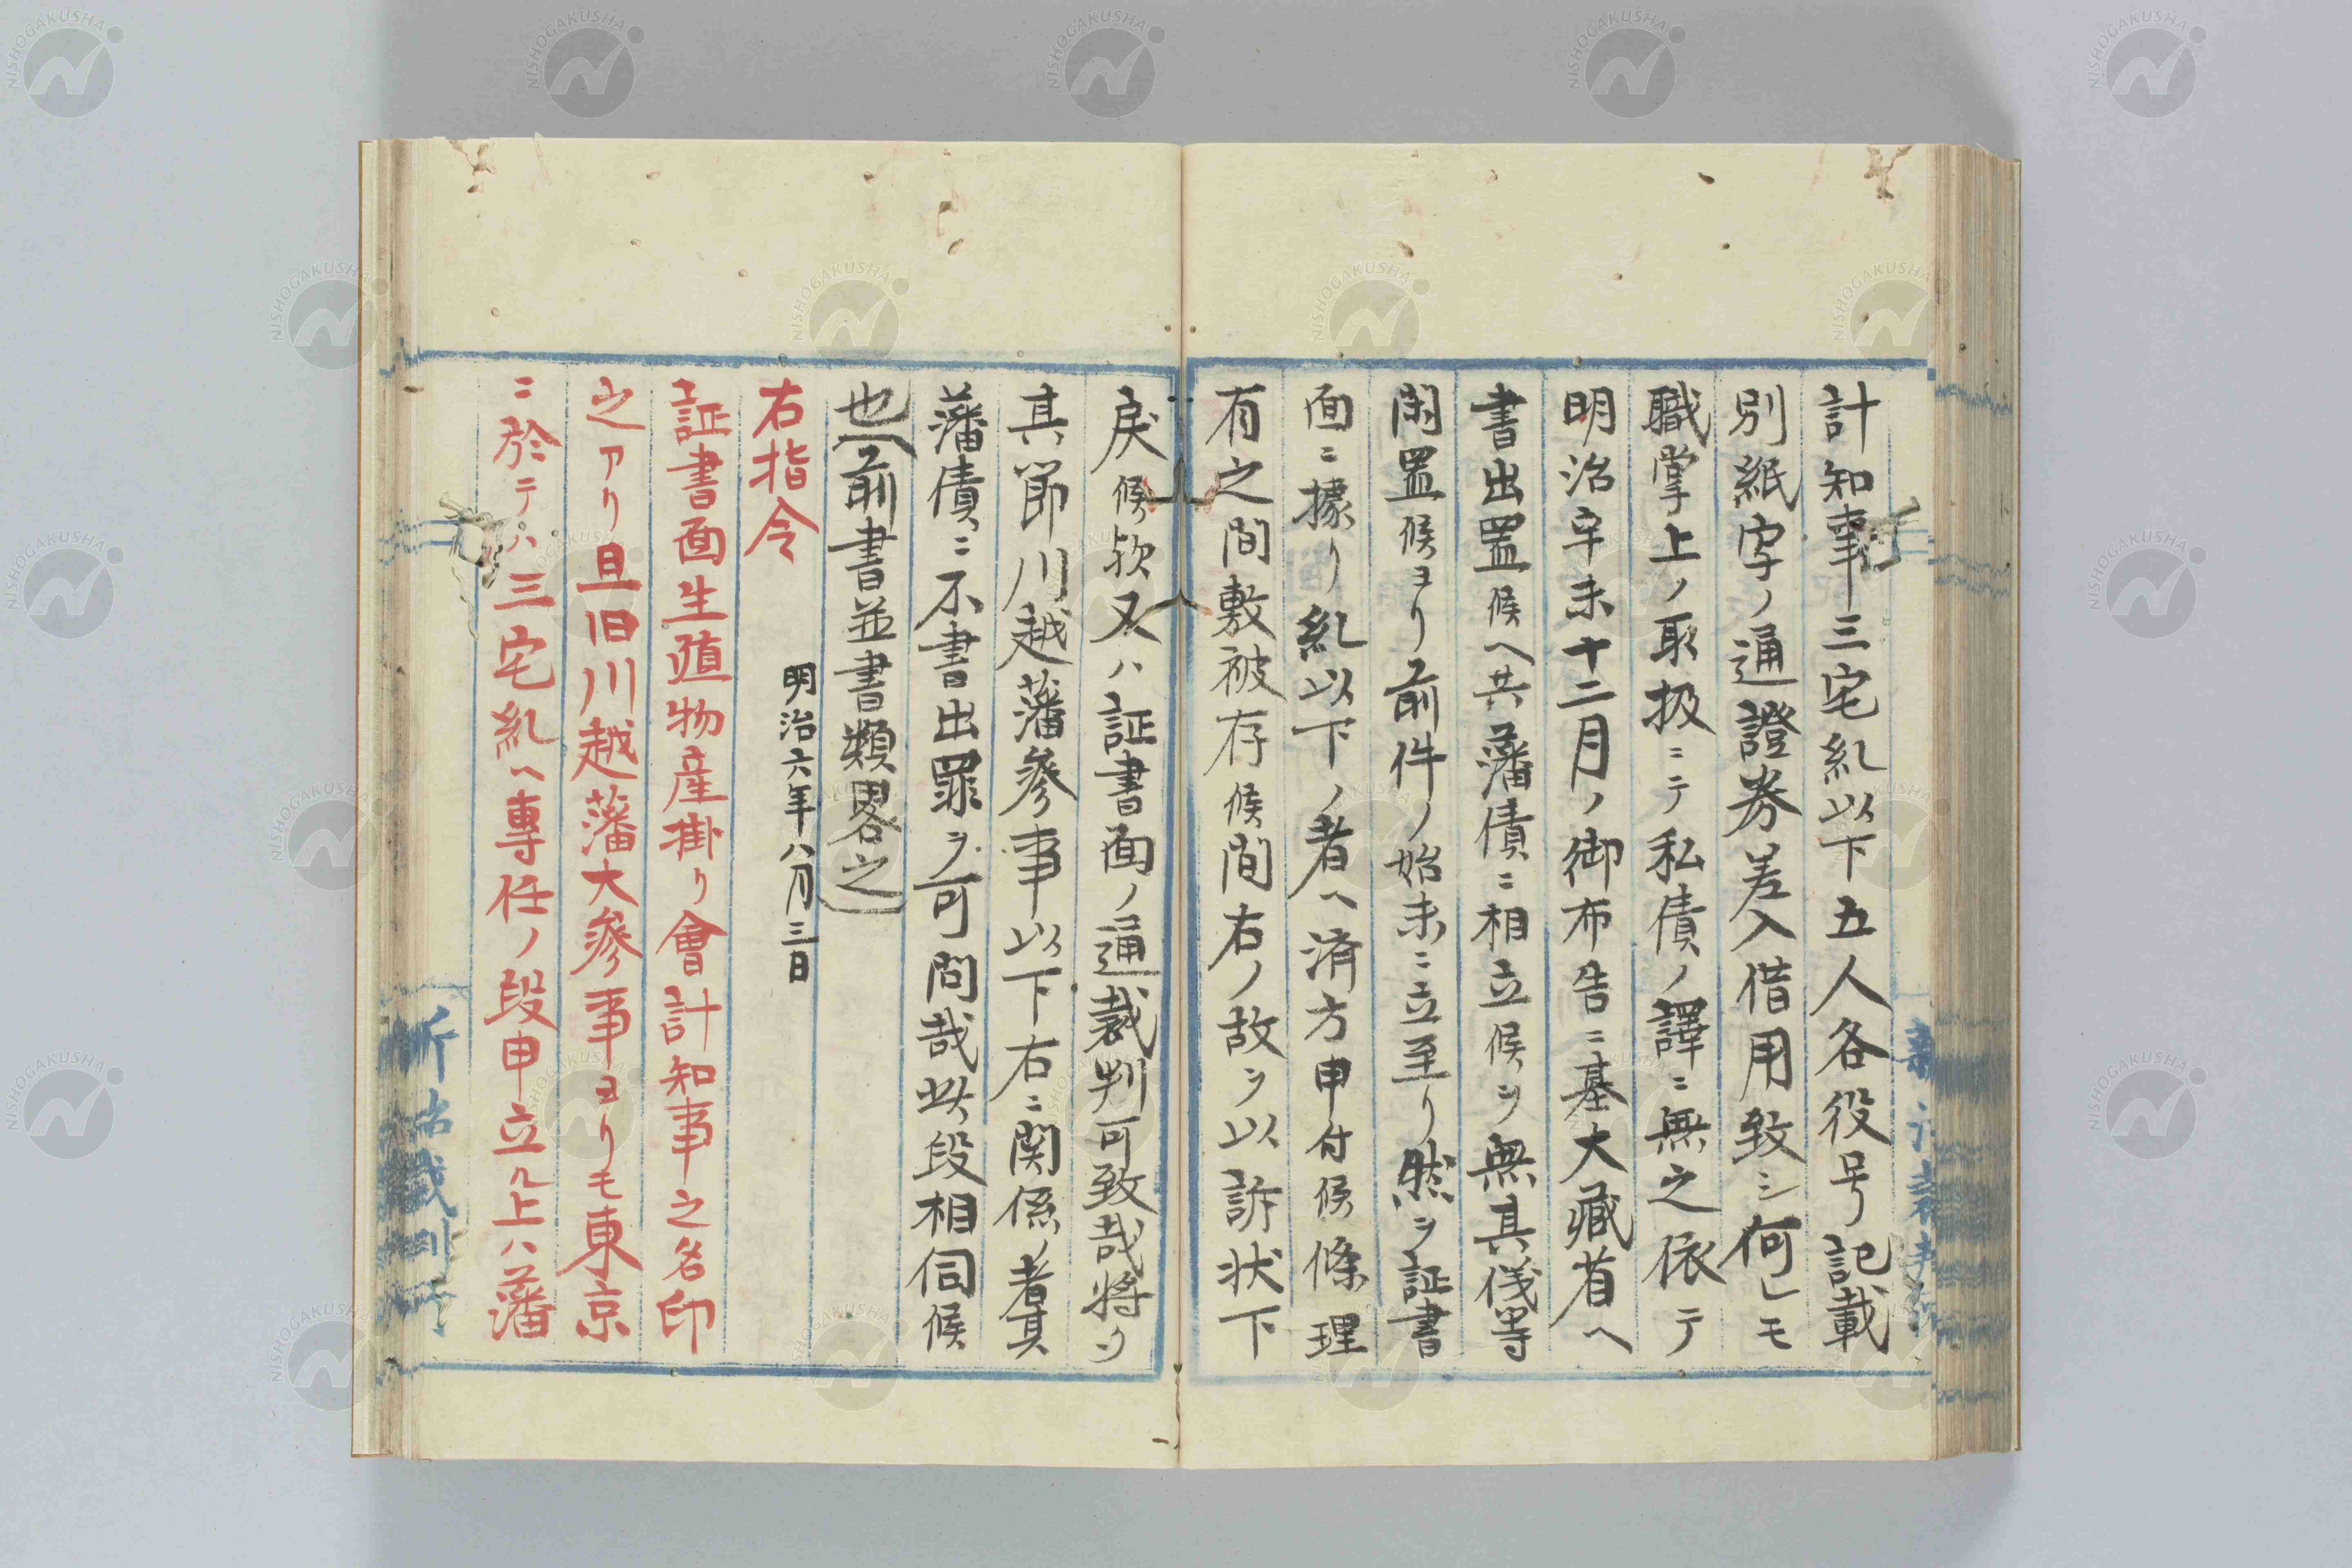 計知事三宅糺以下五人各役号記載
別紙字ノ通證券差入借用致シ何レモ
職掌上ノ取扱ニテ私債ノ譯ニ無之依テ
明治辛未十二月ノ御布告ニ基大蔵省ヘ
書出置候ヘ共藩債ニ相立候ヲ無其儀等
閑置候ヨリ前件ノ始末ニ立至リ然ヲ証書
面ニ據リ糺以下ノ者ヘ済方申付候條理
有之間敷被存候間右ノ故ヲ以訴状下
戻候欤又ハ証書面ノ通裁判可致哉将タ
其節川越藩参事以下右ニ関係ノ者其
藩債ニ不書出罪ヲ可問哉此段相伺候
也(前書並書類畧之)
明治六年八月三日
右指令
証書面生殖物産掛リ會計知事之名印
之アリ且旧川越藩大参事ヨリモ東京
ニ於テハ三宅糺ヘ專任ノ段申立ル上ハ藩
NISHOGAKUSHA